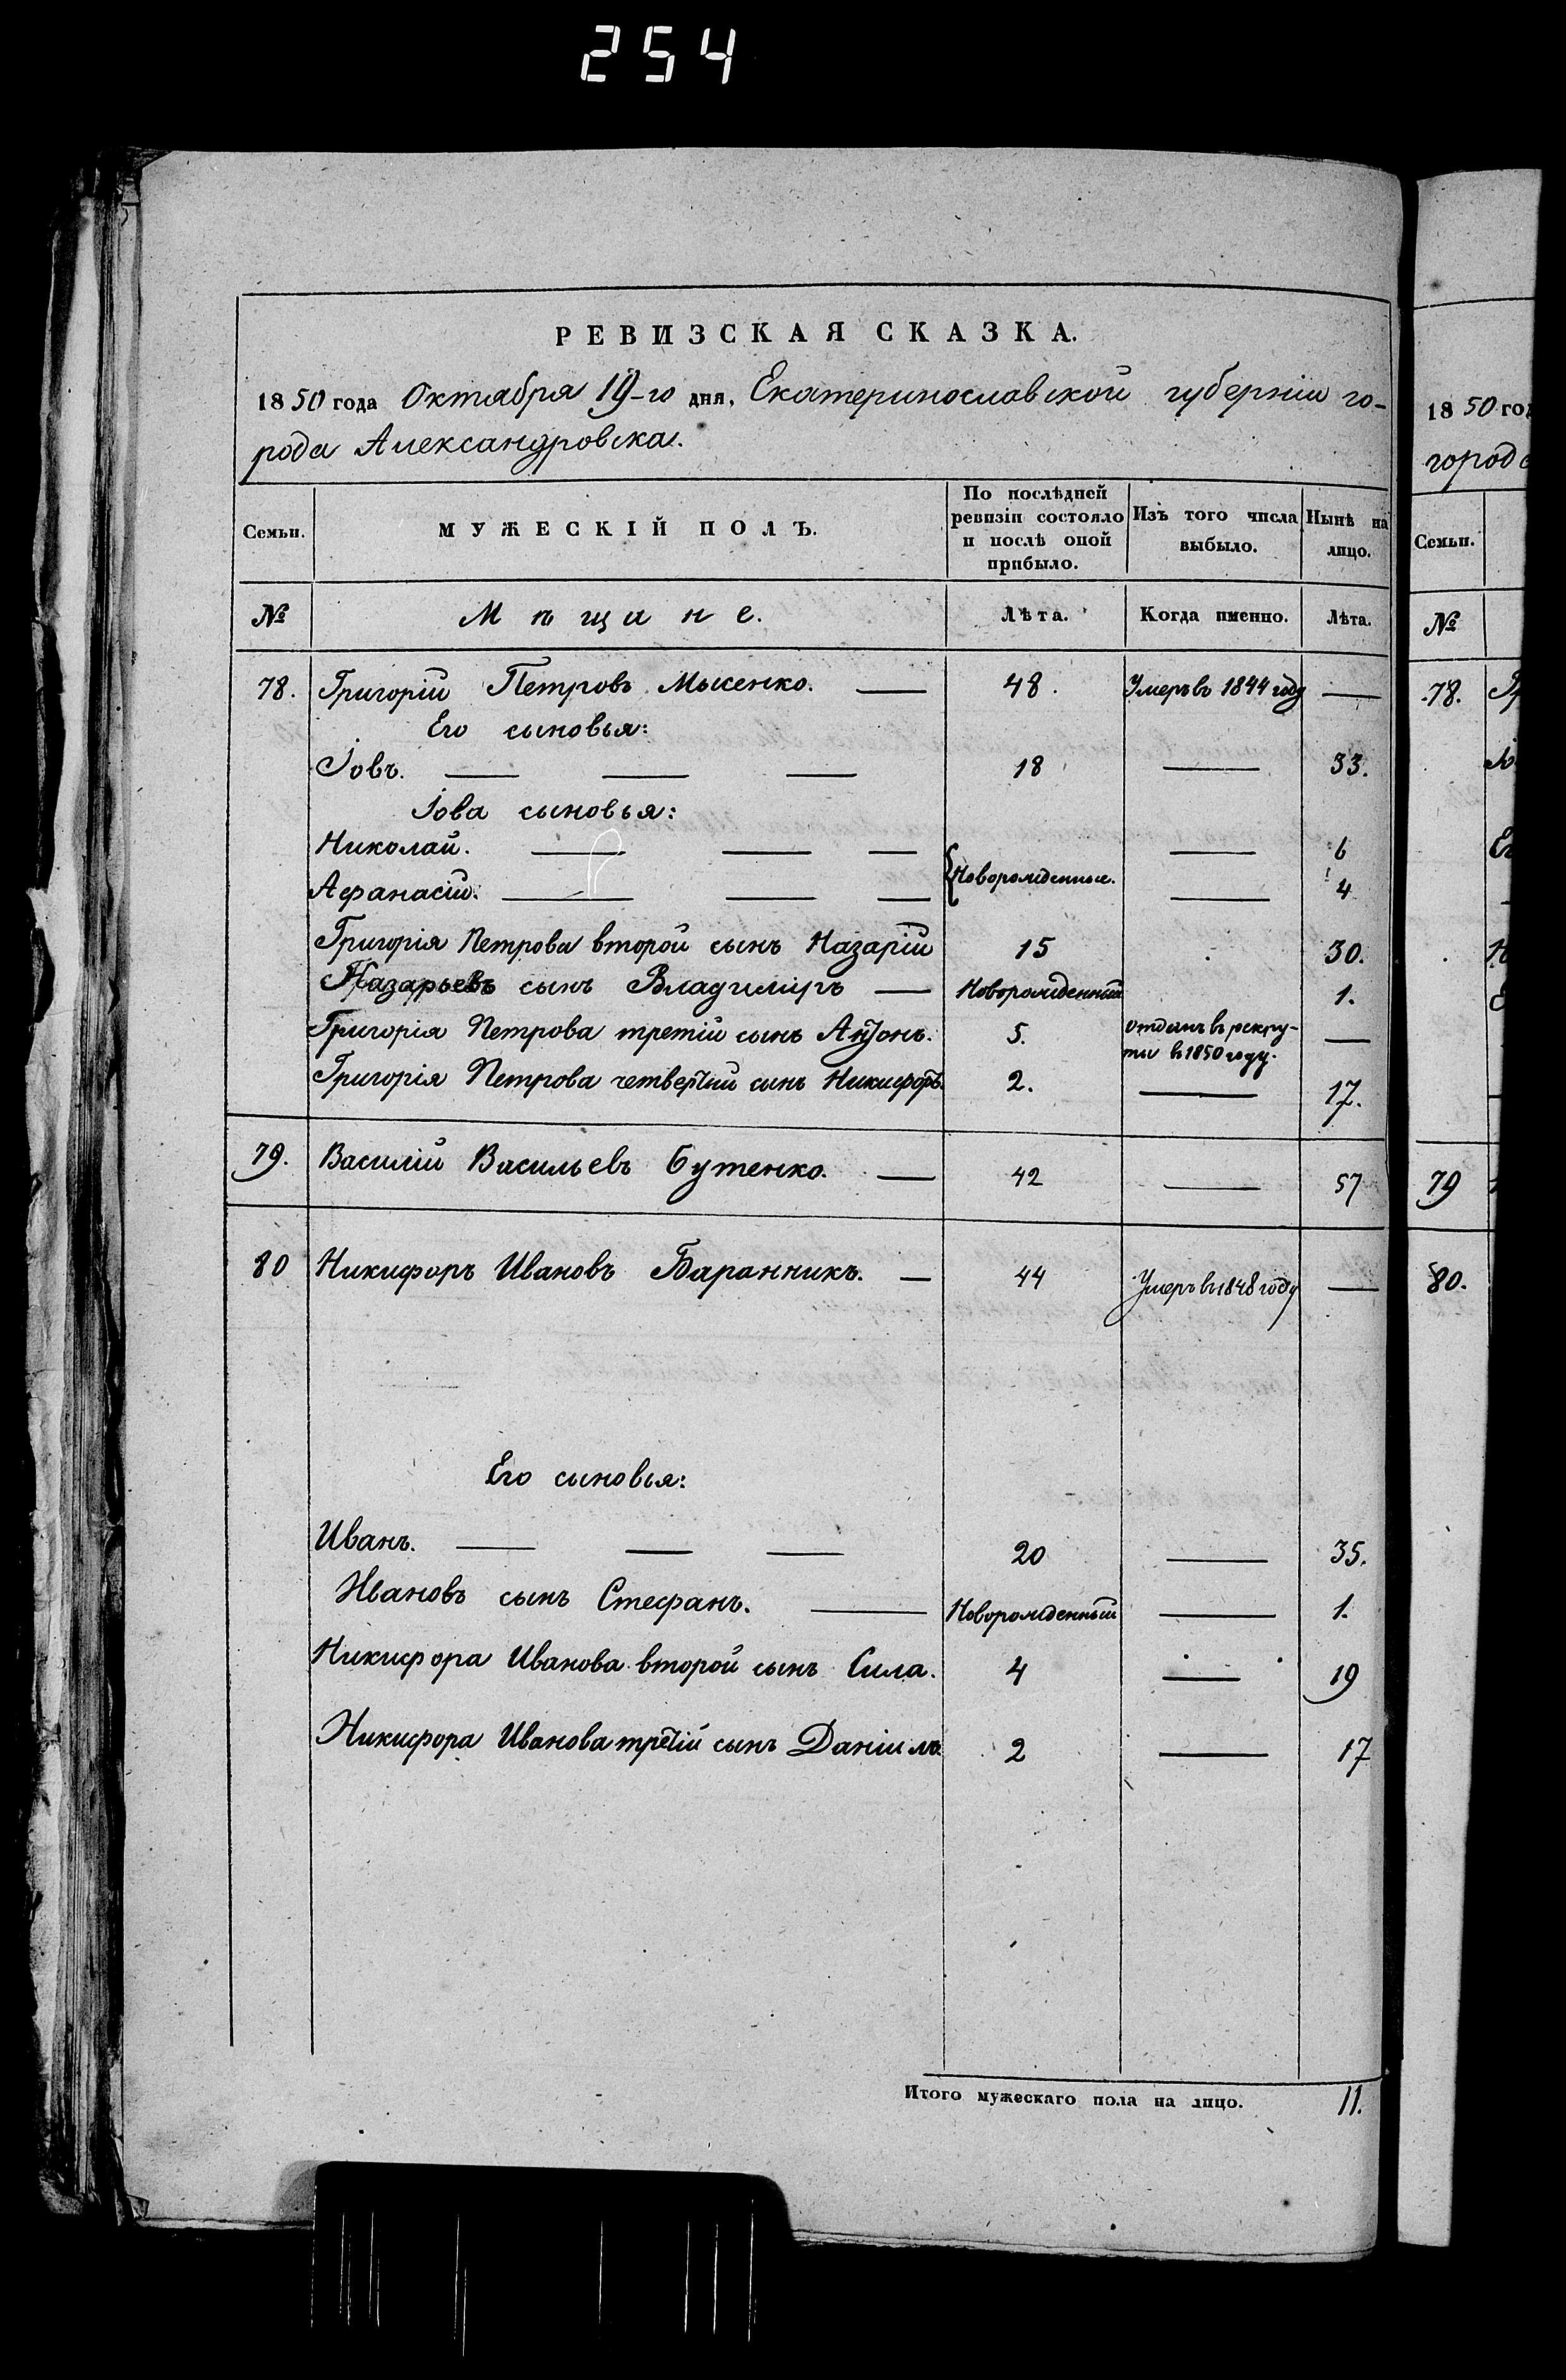 254
РЕВИЗСКАЯ СКАЗКА.
1850 года Октября 19-го дня, Екатеринославской губерніи го-
рода Александровска.
Семьи. МУЖЕСКІЙ ПОЛЪ. По послѣдней ревизіи состояло и послѣ оной прибыло. Изъ того числа выбыло. Нынѣ на лицо.
№ Мѣщане. Лѣта. Когда именно. Лѣта.
78. Григорій Петровъ Мысенко. — 48. Умеръ въ 1844 году —
Его сыновья:
Іовъ. — — — 18 — 33.
Іова сыновья:
Николай. — — — — 6
{Новорожденные.
Афанасій. — — — — 4
Григорія Петрова второй сынъ Назарій 15 30.
Назарьевъ сынъ Владиміръ — Новорожденный 1.
Григорія Петрова третій сынъ Антонъ. 5. отданъ въ рекру-
ты в 1850 году. —
Григорія Петрова четвертый сынъ Никифоръ. 2. — 17.
79. Василій Васильевъ Бутенко. — 42 — 57
80 Никифоръ Ивановъ Баранникъ. — 44 Умеръ въ 1848 году —
Его сыновья:
Иванъ. — — — 20 — 35.
Ивановъ сынъ Стефанъ. — Новорожденный — 1.
Никифора Иванова второй сынъ Сила. 4 — 19
Никифора Иванова третій сынъ Даніилъ 2 — 17
Итого мужескаго пола на лицо. 11.
1850 год
города
Семьи.
№
78.
79
80.